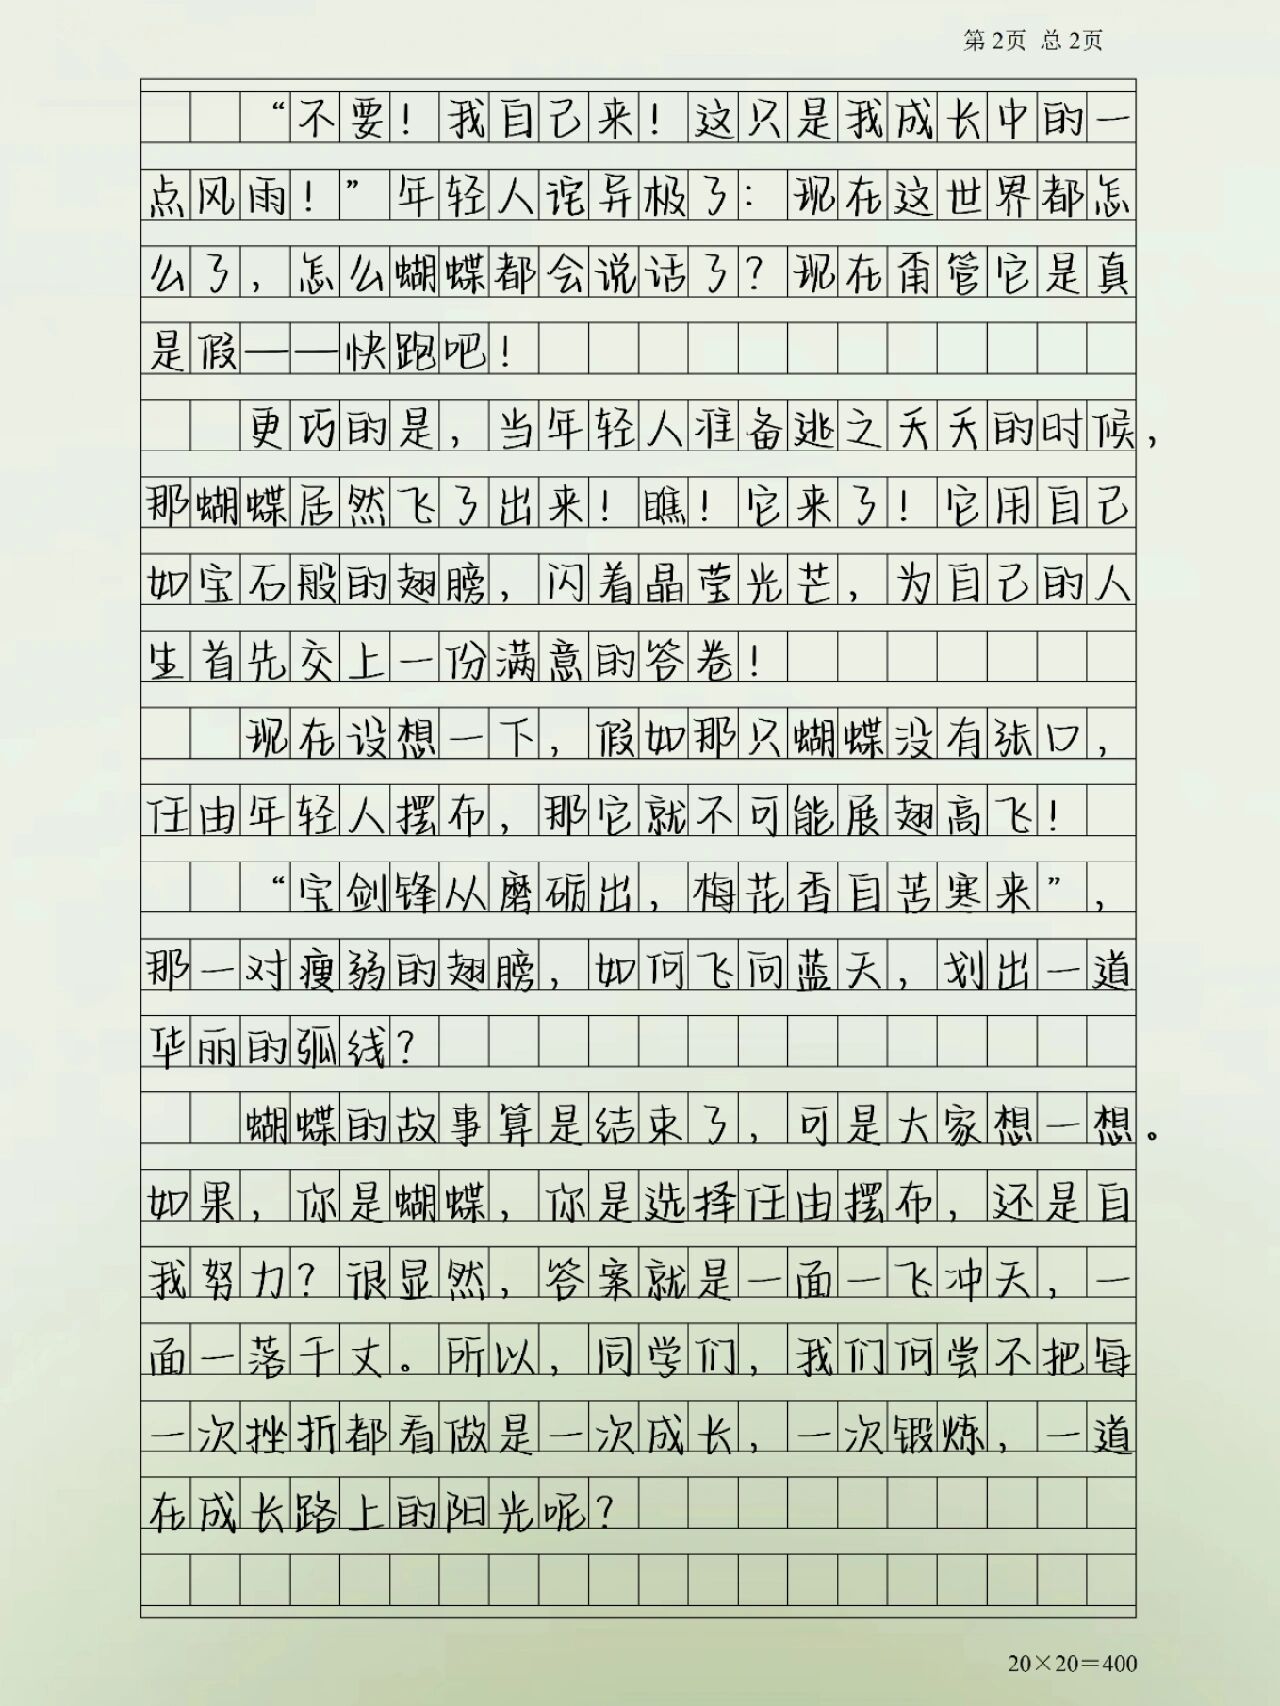 第2页 总2页
“不要！我自己来！这只是我成长中的一
点风雨！”年轻人诧异极了：现在这世界都怎
么了，怎么蝴蝶都会说话了？现在甭管它是真
是假——快跑吧！
更巧的是，当年轻人准备逃之夭夭的时候，
那蝴蝶居然飞了出来！瞧！它来了！它用自己
如宝石般的翅膀，闪着晶莹光芒，为自己的人
生首先交上一份满意的答卷！
现在设想一下，假如那只蝴蝶没有张口，
任由年轻人摆布，那它就不可能展翅高飞！
“宝剑锋从磨砺出，梅花香自苦寒来”，
那一对瘦弱的翅膀，如何飞向蓝天，划出一道
华丽的弧线？
蝴蝶的故事算是结束了，可是大家想一想。
如果，你是蝴蝶，你是选择任由摆布，还是自
我努力？很显然，答案就是一面一飞冲天，一
面一落千丈。所以，同学们，我们何尝不把每
一次挫折都看做是一次成长，一次锻炼，一道
在成长路上的阳光呢？
20×20＝400